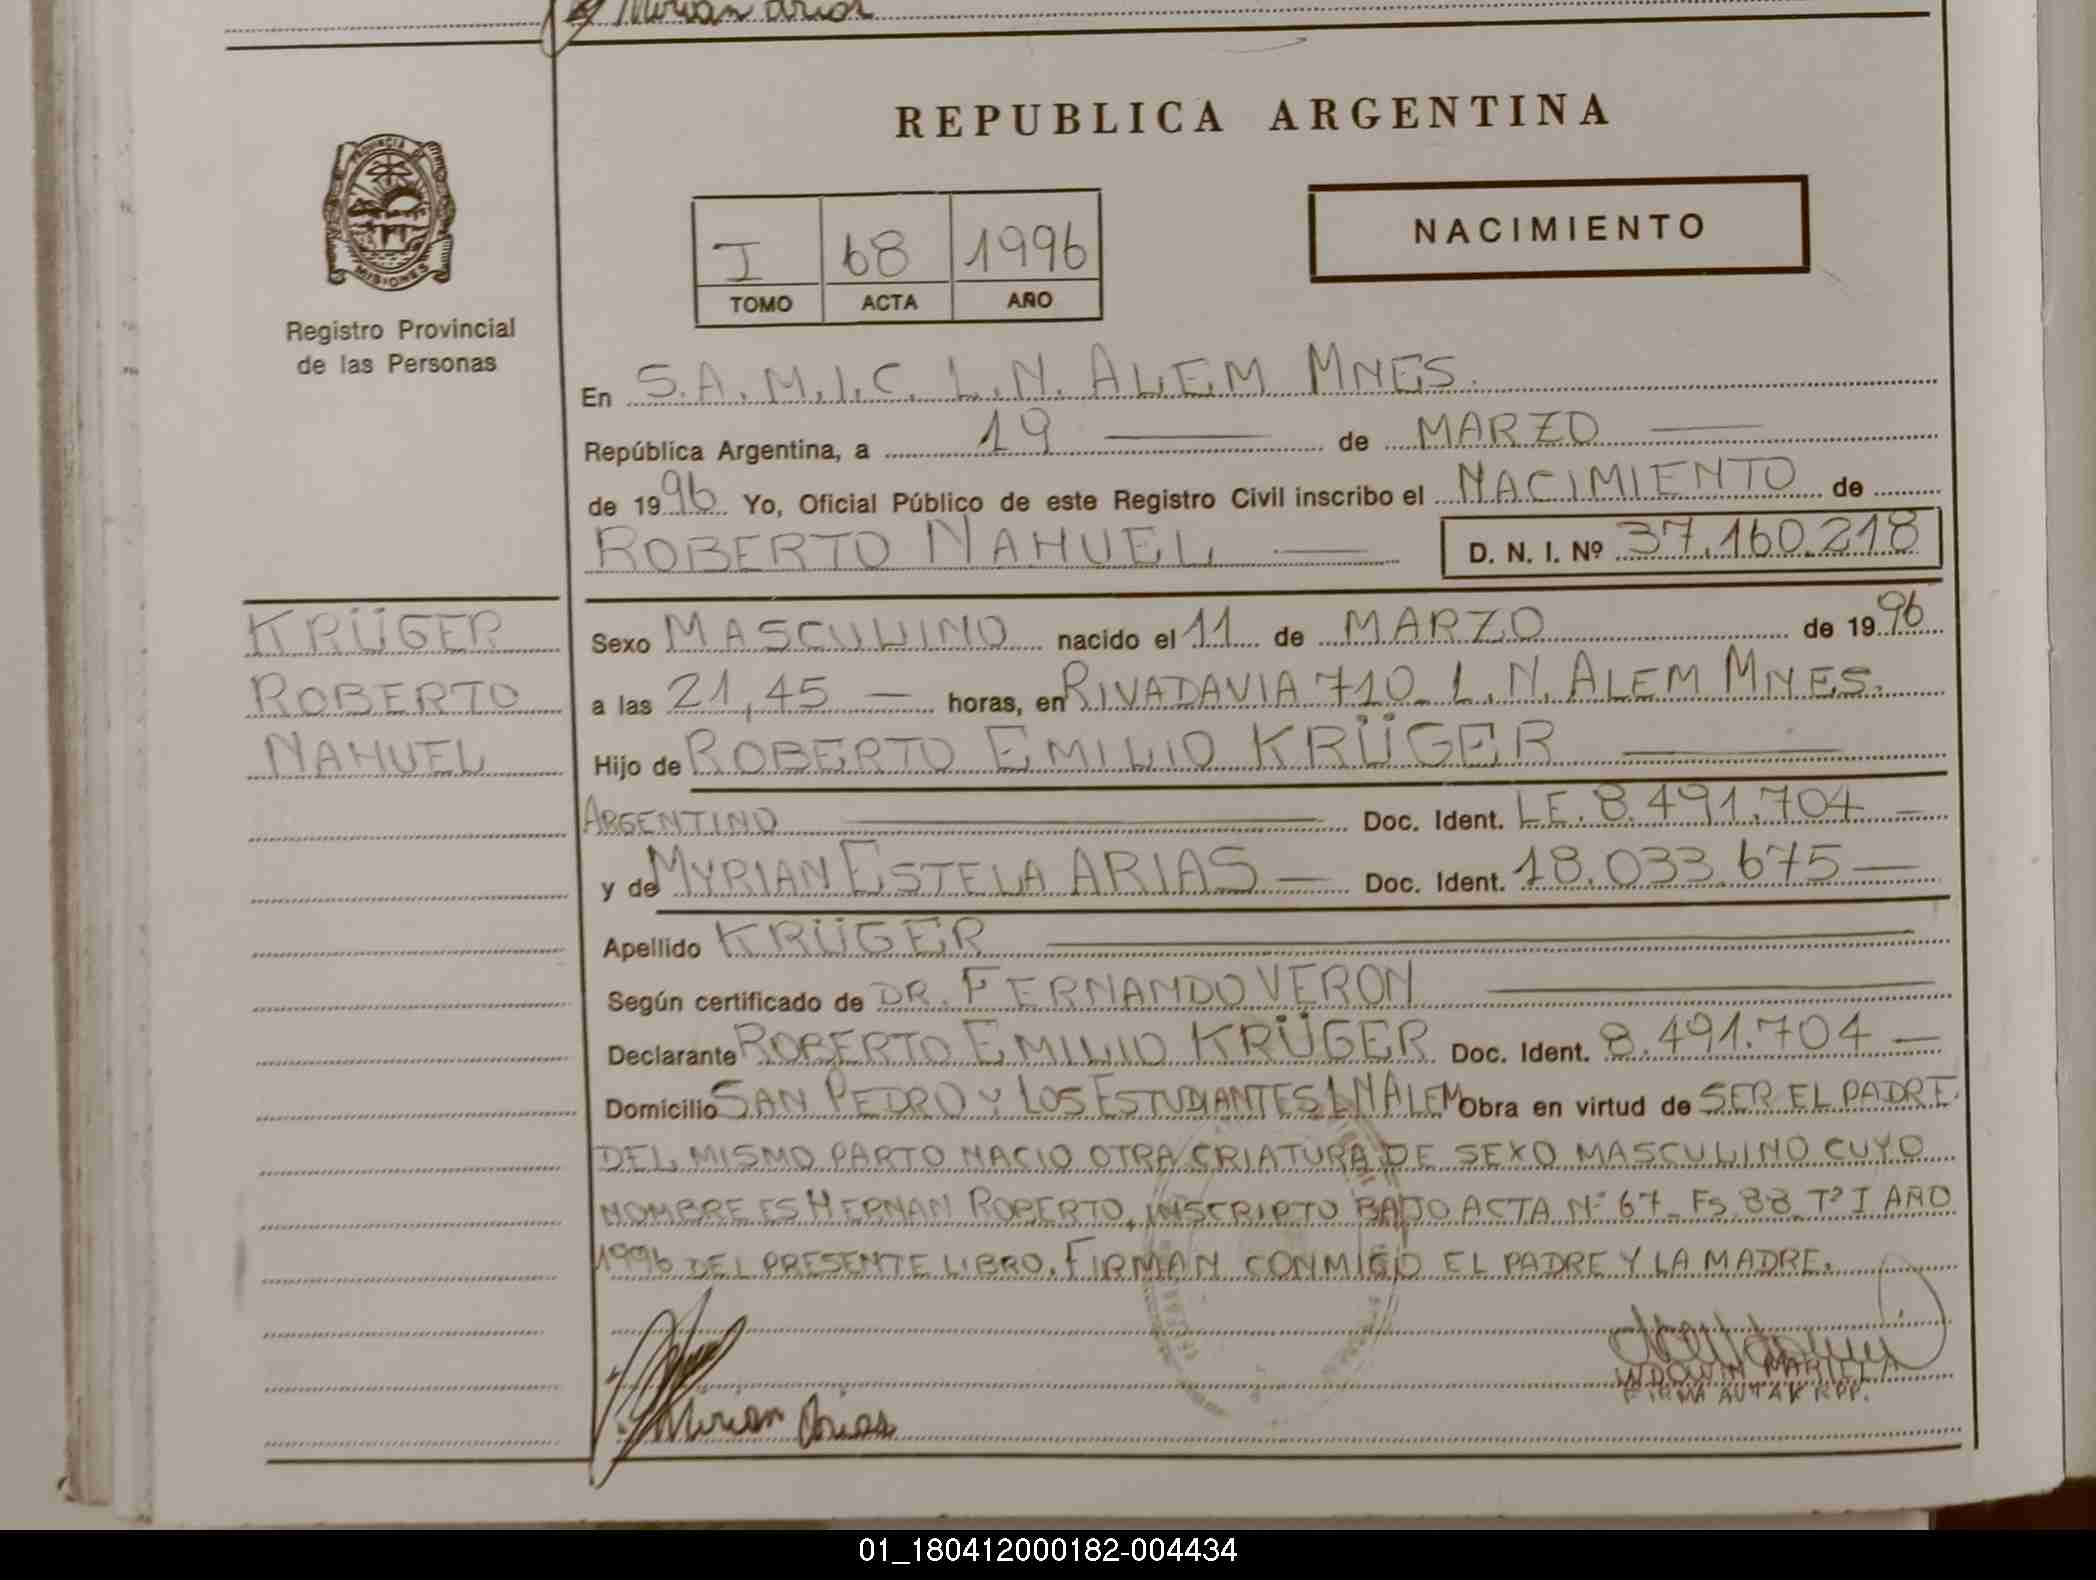 Mirian Arias
REPUBLICA ARGENTINA
PROVINCIA DE
MISIONES
Registro Provincial
de las Personas
I 68 1996
TOMO ACTA AÑO
NACIMIENTO
En S.A.M.I.C. L.N. ALEM MNES.
República Argentina, a 19 de MARZO
de 1996 Yo, Oficial Público de este Registro Civil inscribo el NACIMIENTO de
ROBERTO NAHUEL D. N. I. Nº 37.160.218
KRÜGER
ROBERTO
NAHUEL
Sexo MASCULINO nacido el 11 de MARZO de 1996
a las 21,45 horas, en RIVADAVIA 710 L.N. ALEM MNES.
Hijo de ROBERTO EMILIO KRÜGER
ARGENTINO Doc. Ident. LE. 8.491.704
y de MYRIAN ESTELA ARIAS Doc. Ident. 18.033.675
Apellido KRÜGER
Según certificado de DR. FERNANDO VERON
Declarante ROBERTO EMILIO KRÜGER Doc. Ident. 8.491.704
Domicilio SAN PEDRO Y LOS ESTUDIANTES L N ALEM Obra en virtud de SER EL PADRE.
DEL MISMO PARTO NACIO OTRA CRIATURA DE SEXO MASCULINO CUYO
NOMBRE ES HERNAN ROBERTO, INSCRIPTO BAJO ACTA Nº 67 FS. 88 Tº I AÑO
1996 DEL PRESENTE LIBRO. FIRMAN CONMIGO EL PADRE Y LA MADRE.
WDOWIN MARIELA
FIRMA AUT. A/C RPP.
Mirian Arias
01_180412000182-004434